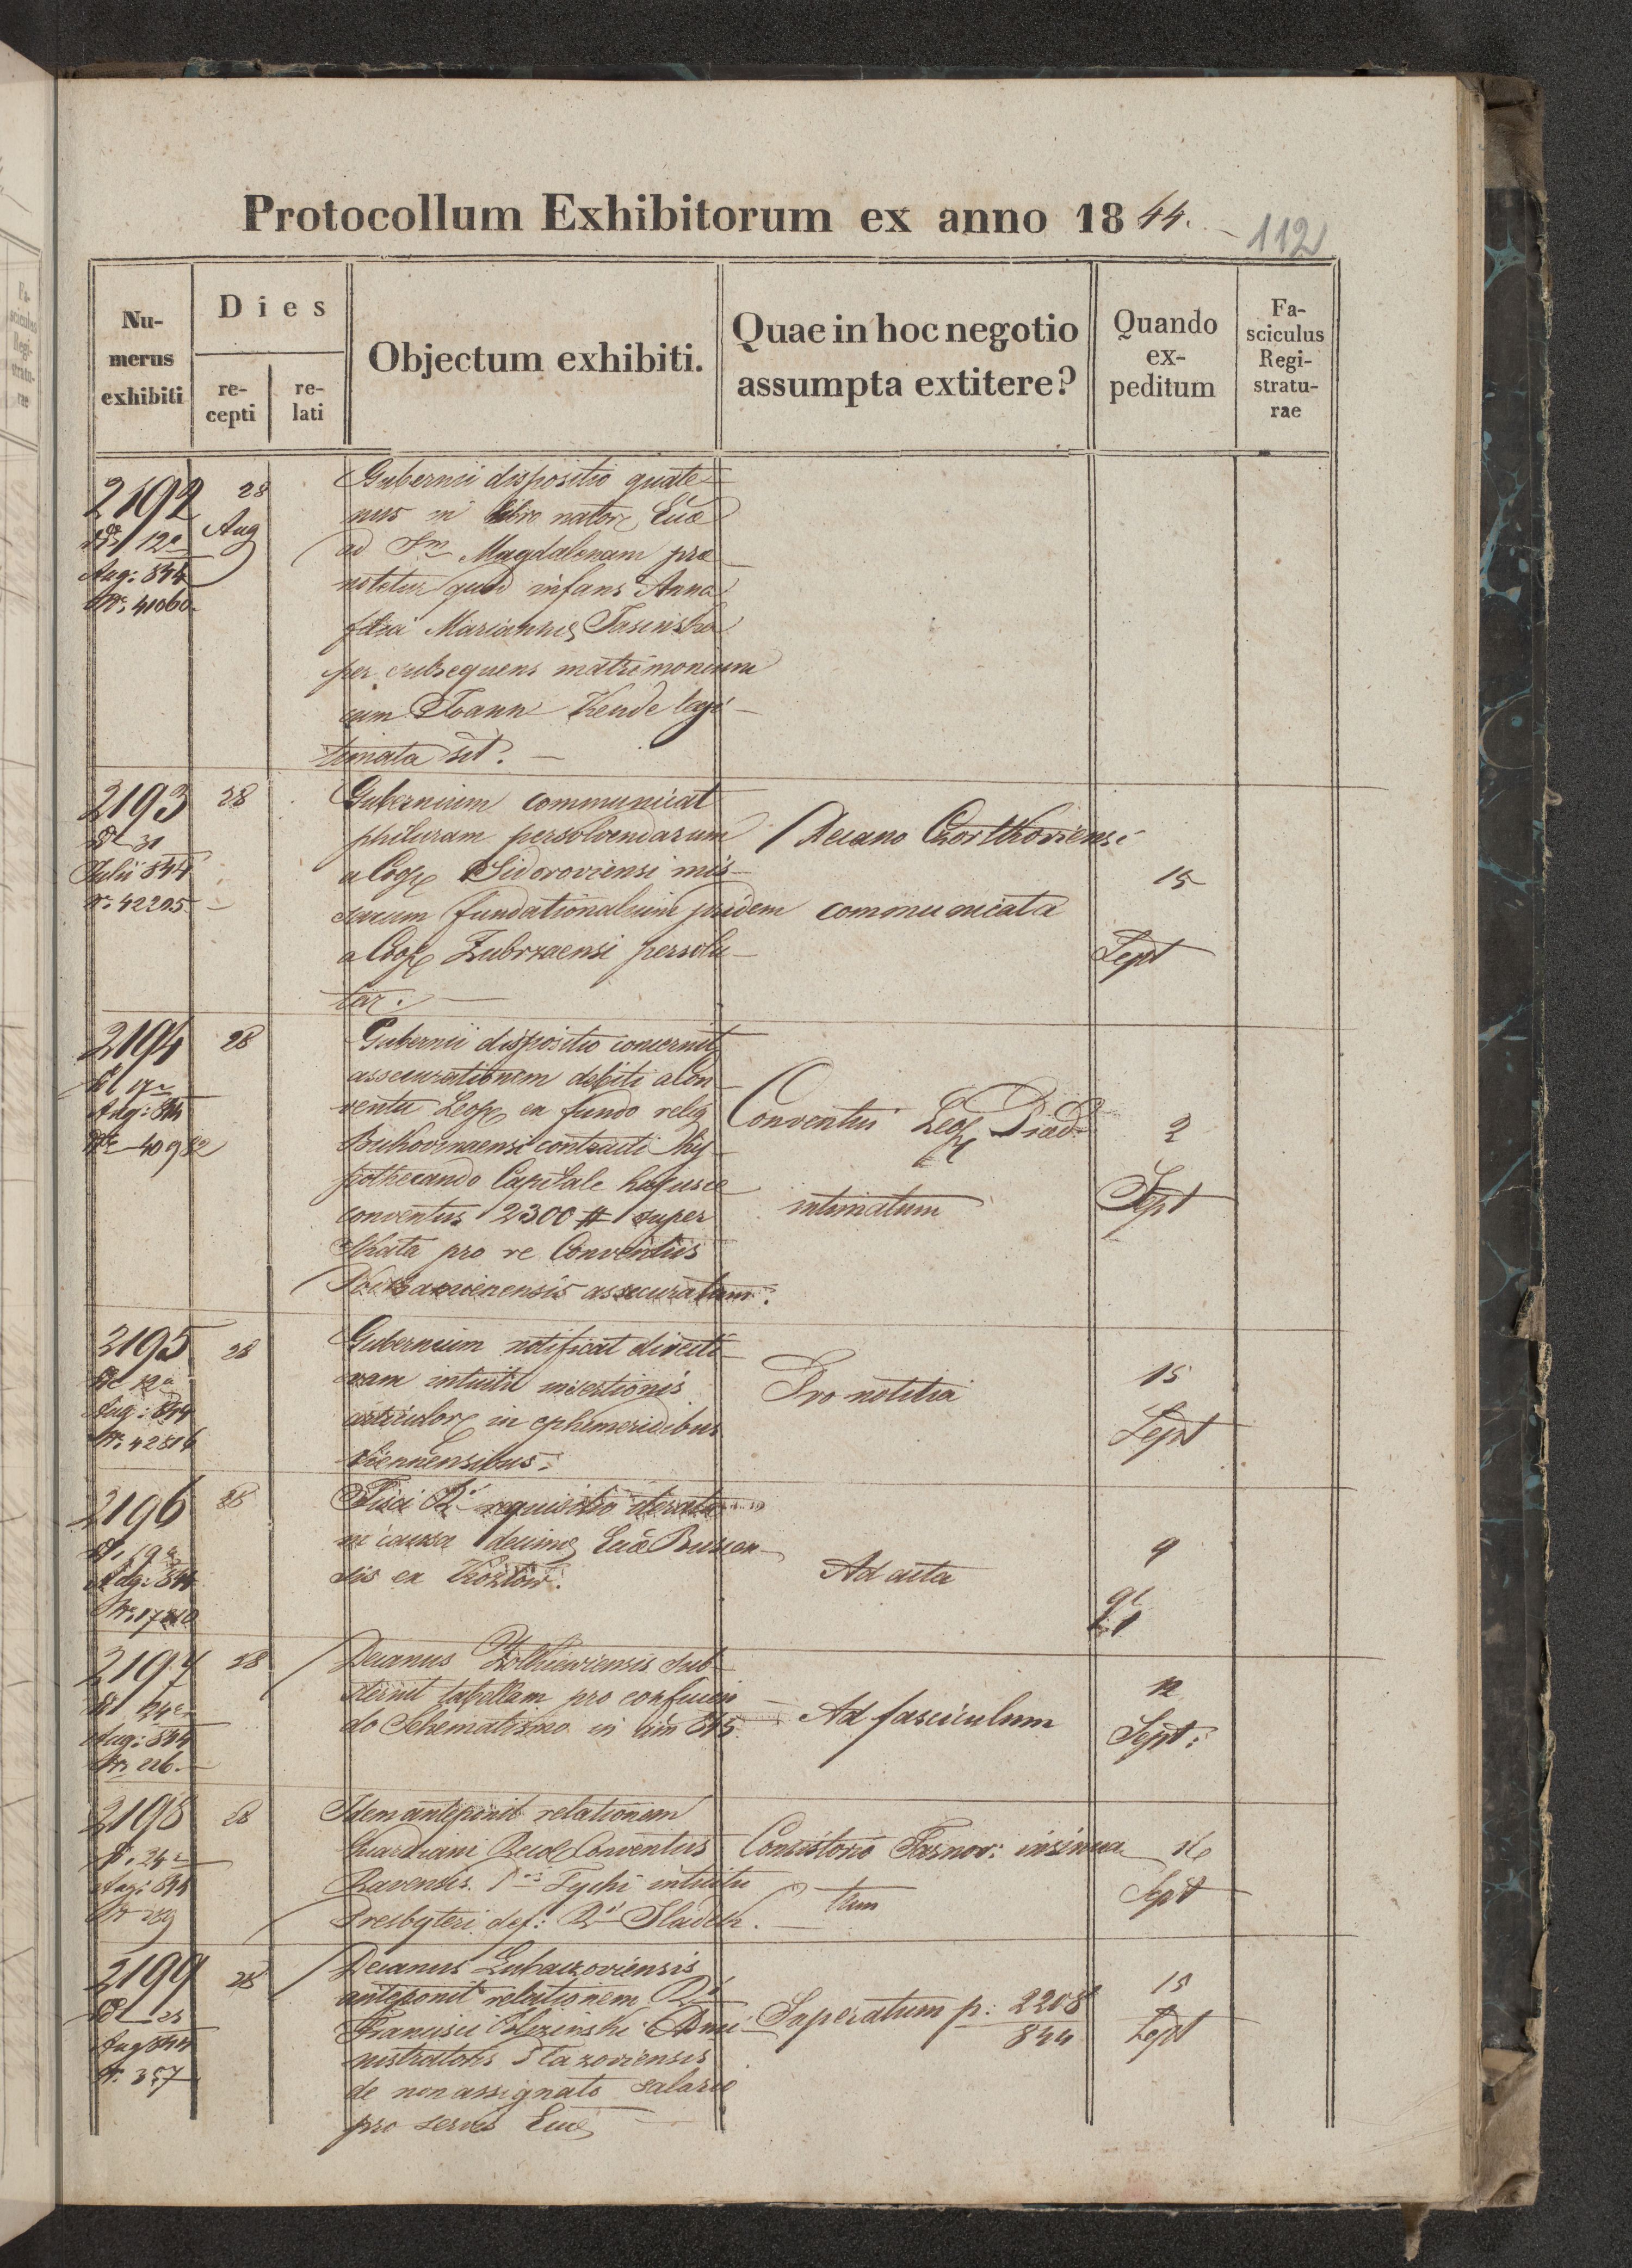 Protocollum Exhibitorum ex anno 1844.
112
Numerus exhibiti
Dies
recepti
relati
Objectum exhibiti.
Quae in hoc negotio assumpta extitere?
Quando expeditum
Fasciculus Registraturae
2192
28 Aug
12a
Aug: 844
Nr. 41060
Gubernii dispositio quate-
nus in libro nator Eccae
ad Sm Magdalenam prae-
notetur quod infans Anna
filia Mariannae Jasinska
per subsequens matrimonium
cum Joann Kende legi-
timata sit. —
2193
28
31
Julii 844
Nr. 42295
Gubernium communicat
philuram persolvendarum
a Coop Sidoroviensi mis-
sarum fundationalium pridem
a Coop Zubrzaensi persolu-
tar. —
Decano Czortkoviensi
communicata
15
Sept
2194
28
17
Aug: 844
40982
Gubernii dispositio concernit
assecurationem debiti a Con-
ventu Leop ex fundo relig
Bukovinaensi contracti hy-
pothecando Capitale hujusce
conventus 2300 # super
pro re Conventus
assecuratum.
Conventui Leop
intimatum
2
Sept
2195
28
12a
Aug: 844
Nr. 42816
Gubernium notificat directi-
vam intuitu insertionis
articulor in ephemeridibus
Viennensibus.
Pro notitia
15
Sept
2196
28
19
Aug: 844
Fisci Ri requisitio iterata
in causa decimae Eccae Buscen-
sis ex Kozlow.
Ad acta
9
2197
28
24
Aug: 844
Nr. 226.
Decanus Zolkieviensis sub-
sternit tabellam pro conficien-
do Schematismo in an 845
Ad fasciculum
12
Sept:
2198
28
24
Aug: 844
Idem anteponit relationem
Guardiani Conventus
Ravensis Tychi intuitu
Presbyteri def: Ri Sladek.
Consistorio Tarnov: insinua-
tum
16
Sept
2199
28
25
Aug 844
Nr. 357
Decanus Lubaczoviensis
anteponit relationem Ri
Francisci Admi-
nistratoris Plazoviensis
de non assignato salario
pro servis Eccae
Superatum p: 2208
844
15
Sept